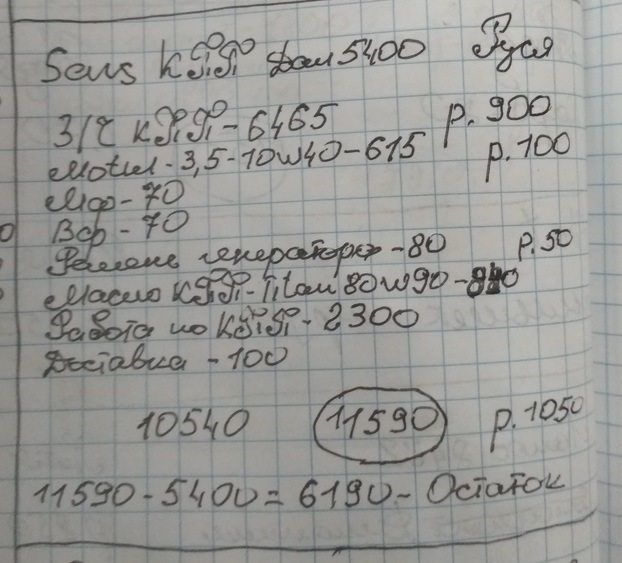 Sens КПП Дал 5400 Руся
З/Ч КПП - 6465 р. 900
Motul - 3,5 - 10w40 - 615 р. 100
Мф - 70
Вф - 70
Ремень генератора - 80 р. 50
Масло КПП - Titan 80w90 - 840
Работа по КПП - 2300
Доставка - 100
10540 11590 р. 1050
11590 - 5400 = 6190 - Остаток